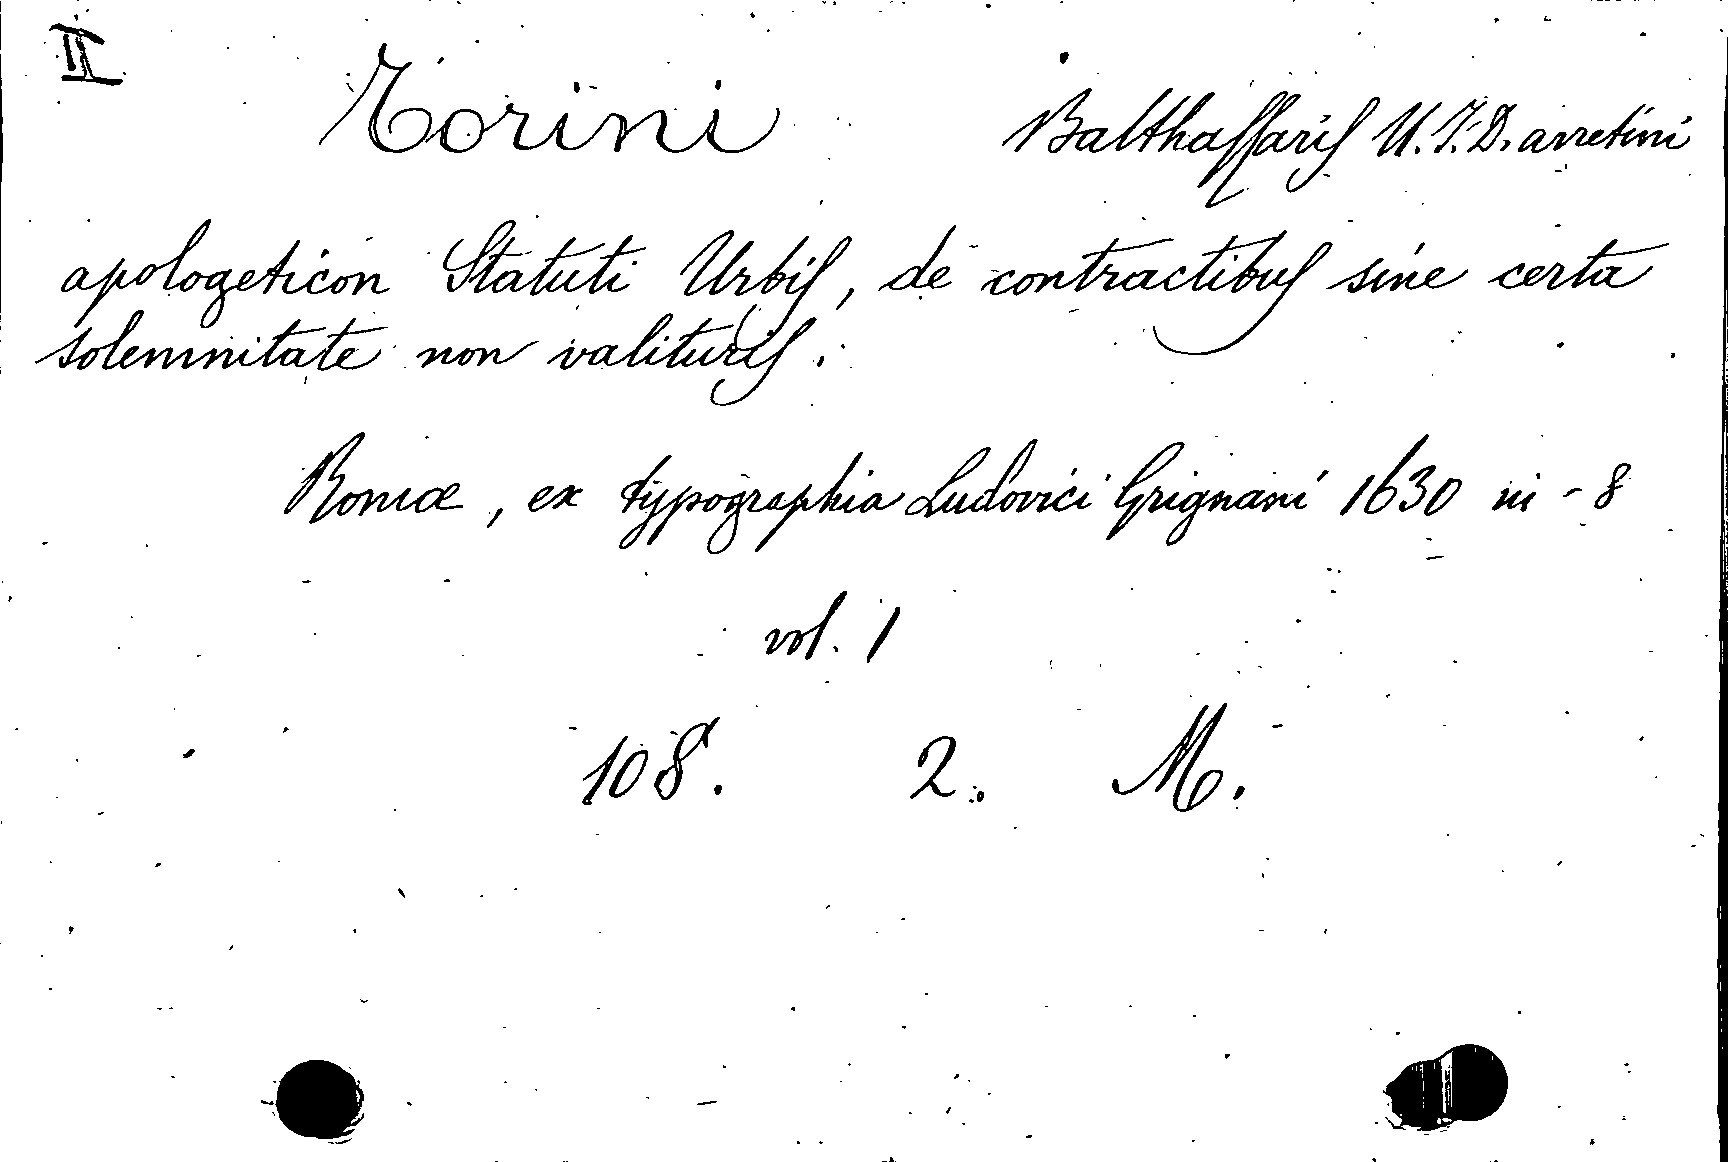 II
Torini Balthassaris U.J.D. arretini
apologeticon Statuti Urbis, de contractibus sine certa
solemnitate non valituris.
Romæ, ex typographia Ludovici Grignani 1630 in-8
vol. 1
108. 2. M.